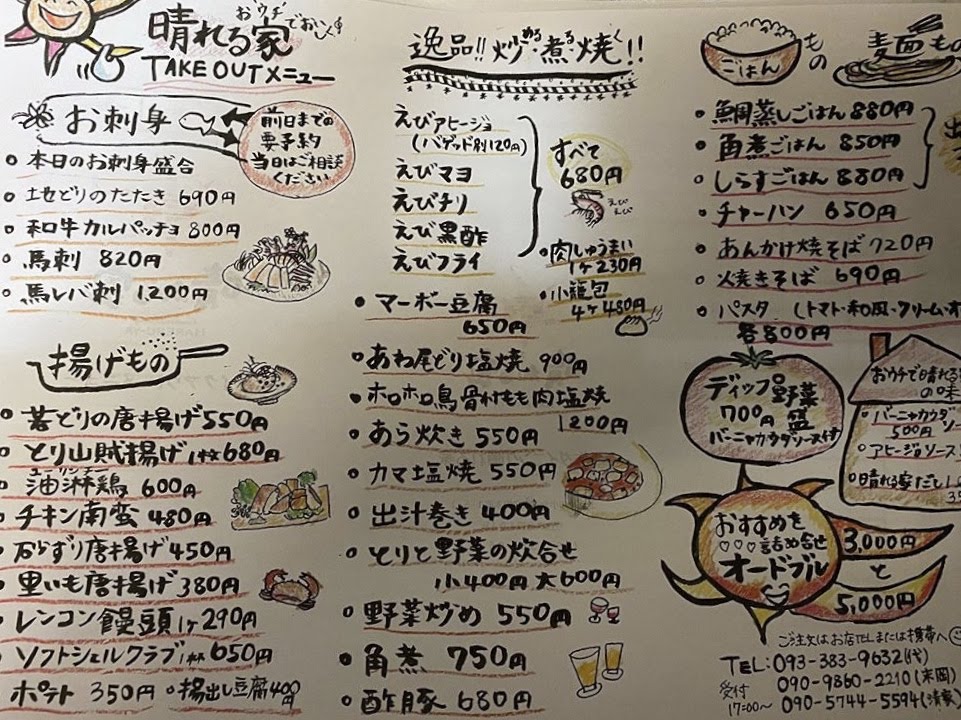 おウチでおいしく
晴れる家
TAKE OUTメニュー
お刺身
前日までの
要予約
当日はご相談
ください
本日のお刺身盛合
土佐どりのたたき 690円
和牛カルパッチョ 800円
馬刺 820円
馬レバ刺 1200円
揚げもの
若どりの唐揚げ 550円
とり山賊揚げ 1枚 680円
ユーリンチー
油淋鶏 600円
チキン南蛮 480円
砂ずり唐揚げ 450円
里いも唐揚げ 380円
レンコン饅頭 1ケ 290円
ソフトシェルクラブ 1杯 650円
ポテト 350円 揚出し豆腐 400円
逸品!! 炒める・煮る・焼く!!
えびアヒージョ
(バゲッド別120円)
えびマヨ
えびチリ
えび黒酢
えびフライ
すべて
680円
えび
えび
肉しゅうまい
1ケ 230円
小籠包
4ケ 480円
マーボー豆腐
650円
あわ尾どり塩焼 900円
ホロホロ鳥骨付もも肉塩焼
1200円
あら炊き 550円
カマ塩焼 550円
出汁巻き 400円
とりと野菜の炊合せ
小400円 大600円
野菜炒め 550円
角煮 750円
酢豚 680円
ごはんもの
麺もの
鯛蒸しごはん 880円
角煮ごはん 850円
しらすごはん 880円
チャーハン 650円
あんかけ焼そば 720円
焼きそば 690円
パスタ (トマト・和風・クリーム・オ
各800円
ディップ野菜盛
700円
バーニャカウダソース付
おウチで晴れる
の味
バーニャカウダソー
500円
アヒージョソース
晴れる家だし
おすすめを
♡♡♡詰め合せ
オードブル
3,000円
と
5,000円
ご注文はお店TELまたは携帯へ
TEL:093-383-9632(代)
受付
17:00〜
090-9860-2210(末岡)
090-5744-5594(清家)